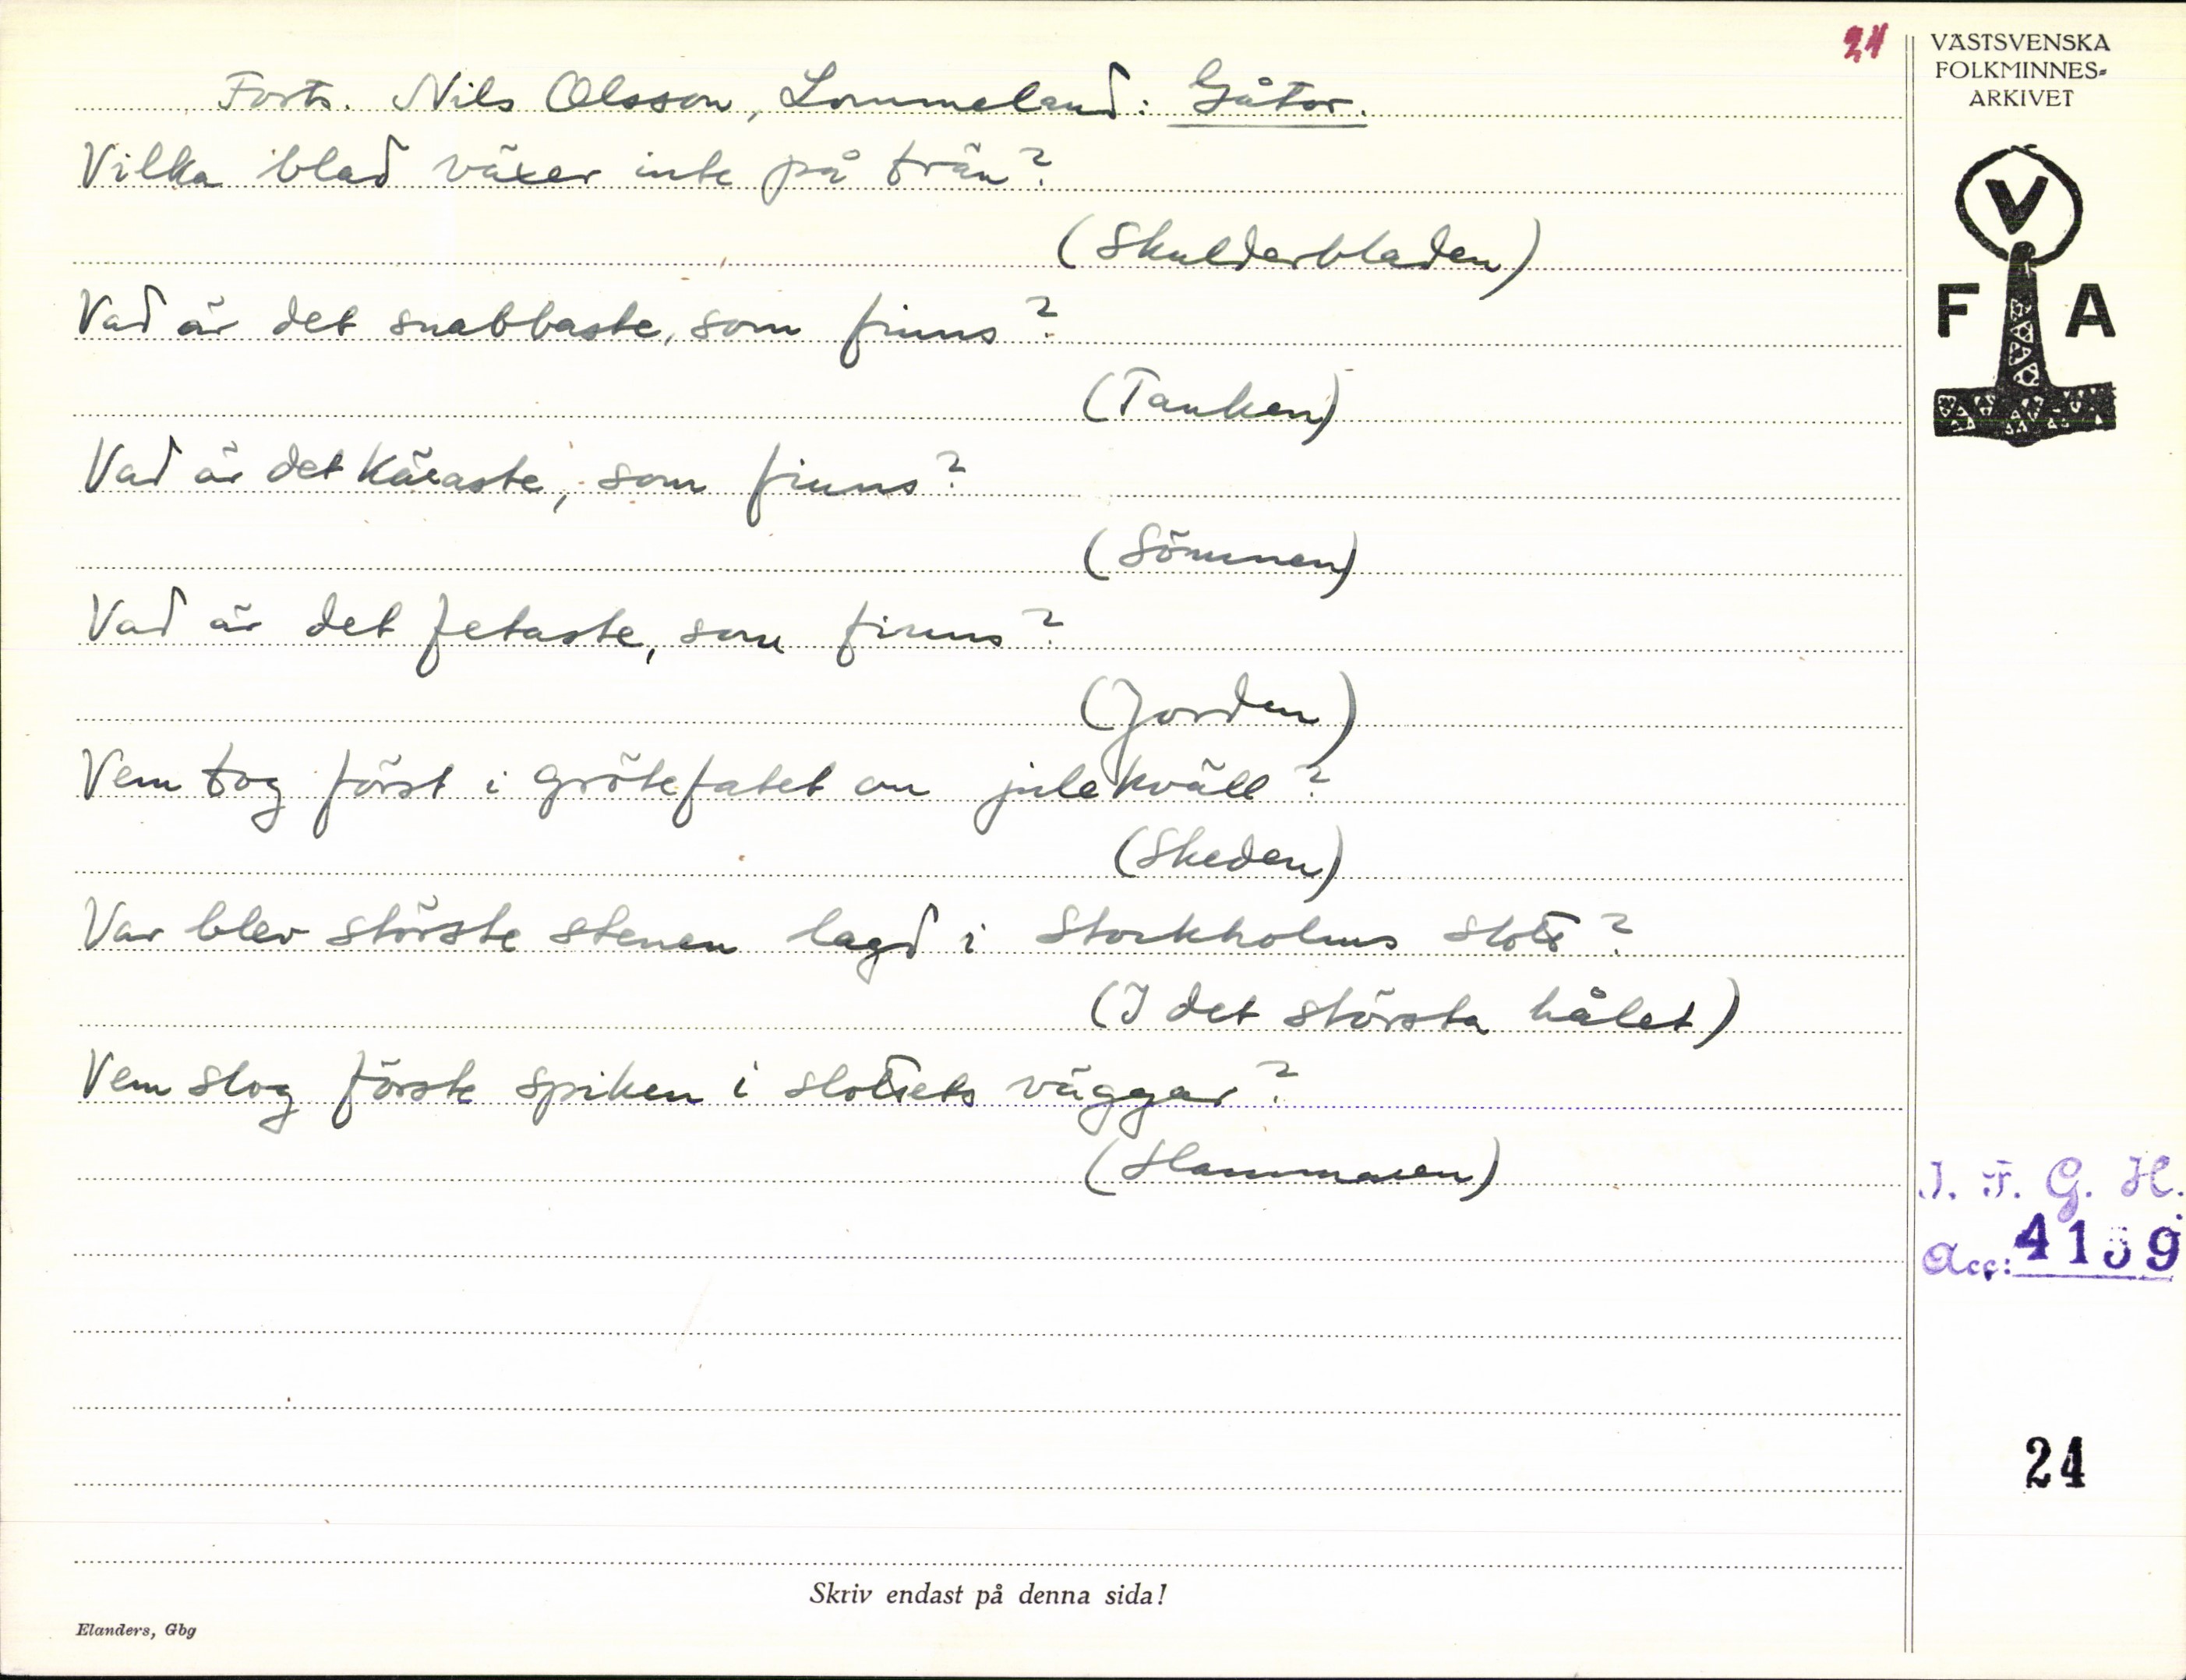 24
Forts. Nils Olsson, Lommeland: Gåtor.
Vilka blad växer inte på trän?
(Skulderbladen)
Vad är det snabbaste, som finns?
(Tanken)
Vad är det käraste, som finns?
(Sömnen)
Vad är det fetaste, som finns?
(Jorden)
Vem tog först i grötefatet om julekväll?
(Skeden)
Var blev störste stenen lagd i Stockholms slott?
(I det största hålet)
Vem slog förste spiken i slottets väggar?
(Hammaren)
Skriv endast på denna sida!
Elanders, Gbg
VÄSTSVENSKA
FOLKMINNES-
ARKIVET
V
F A
I. F. G. H.
Acc: 4159
24